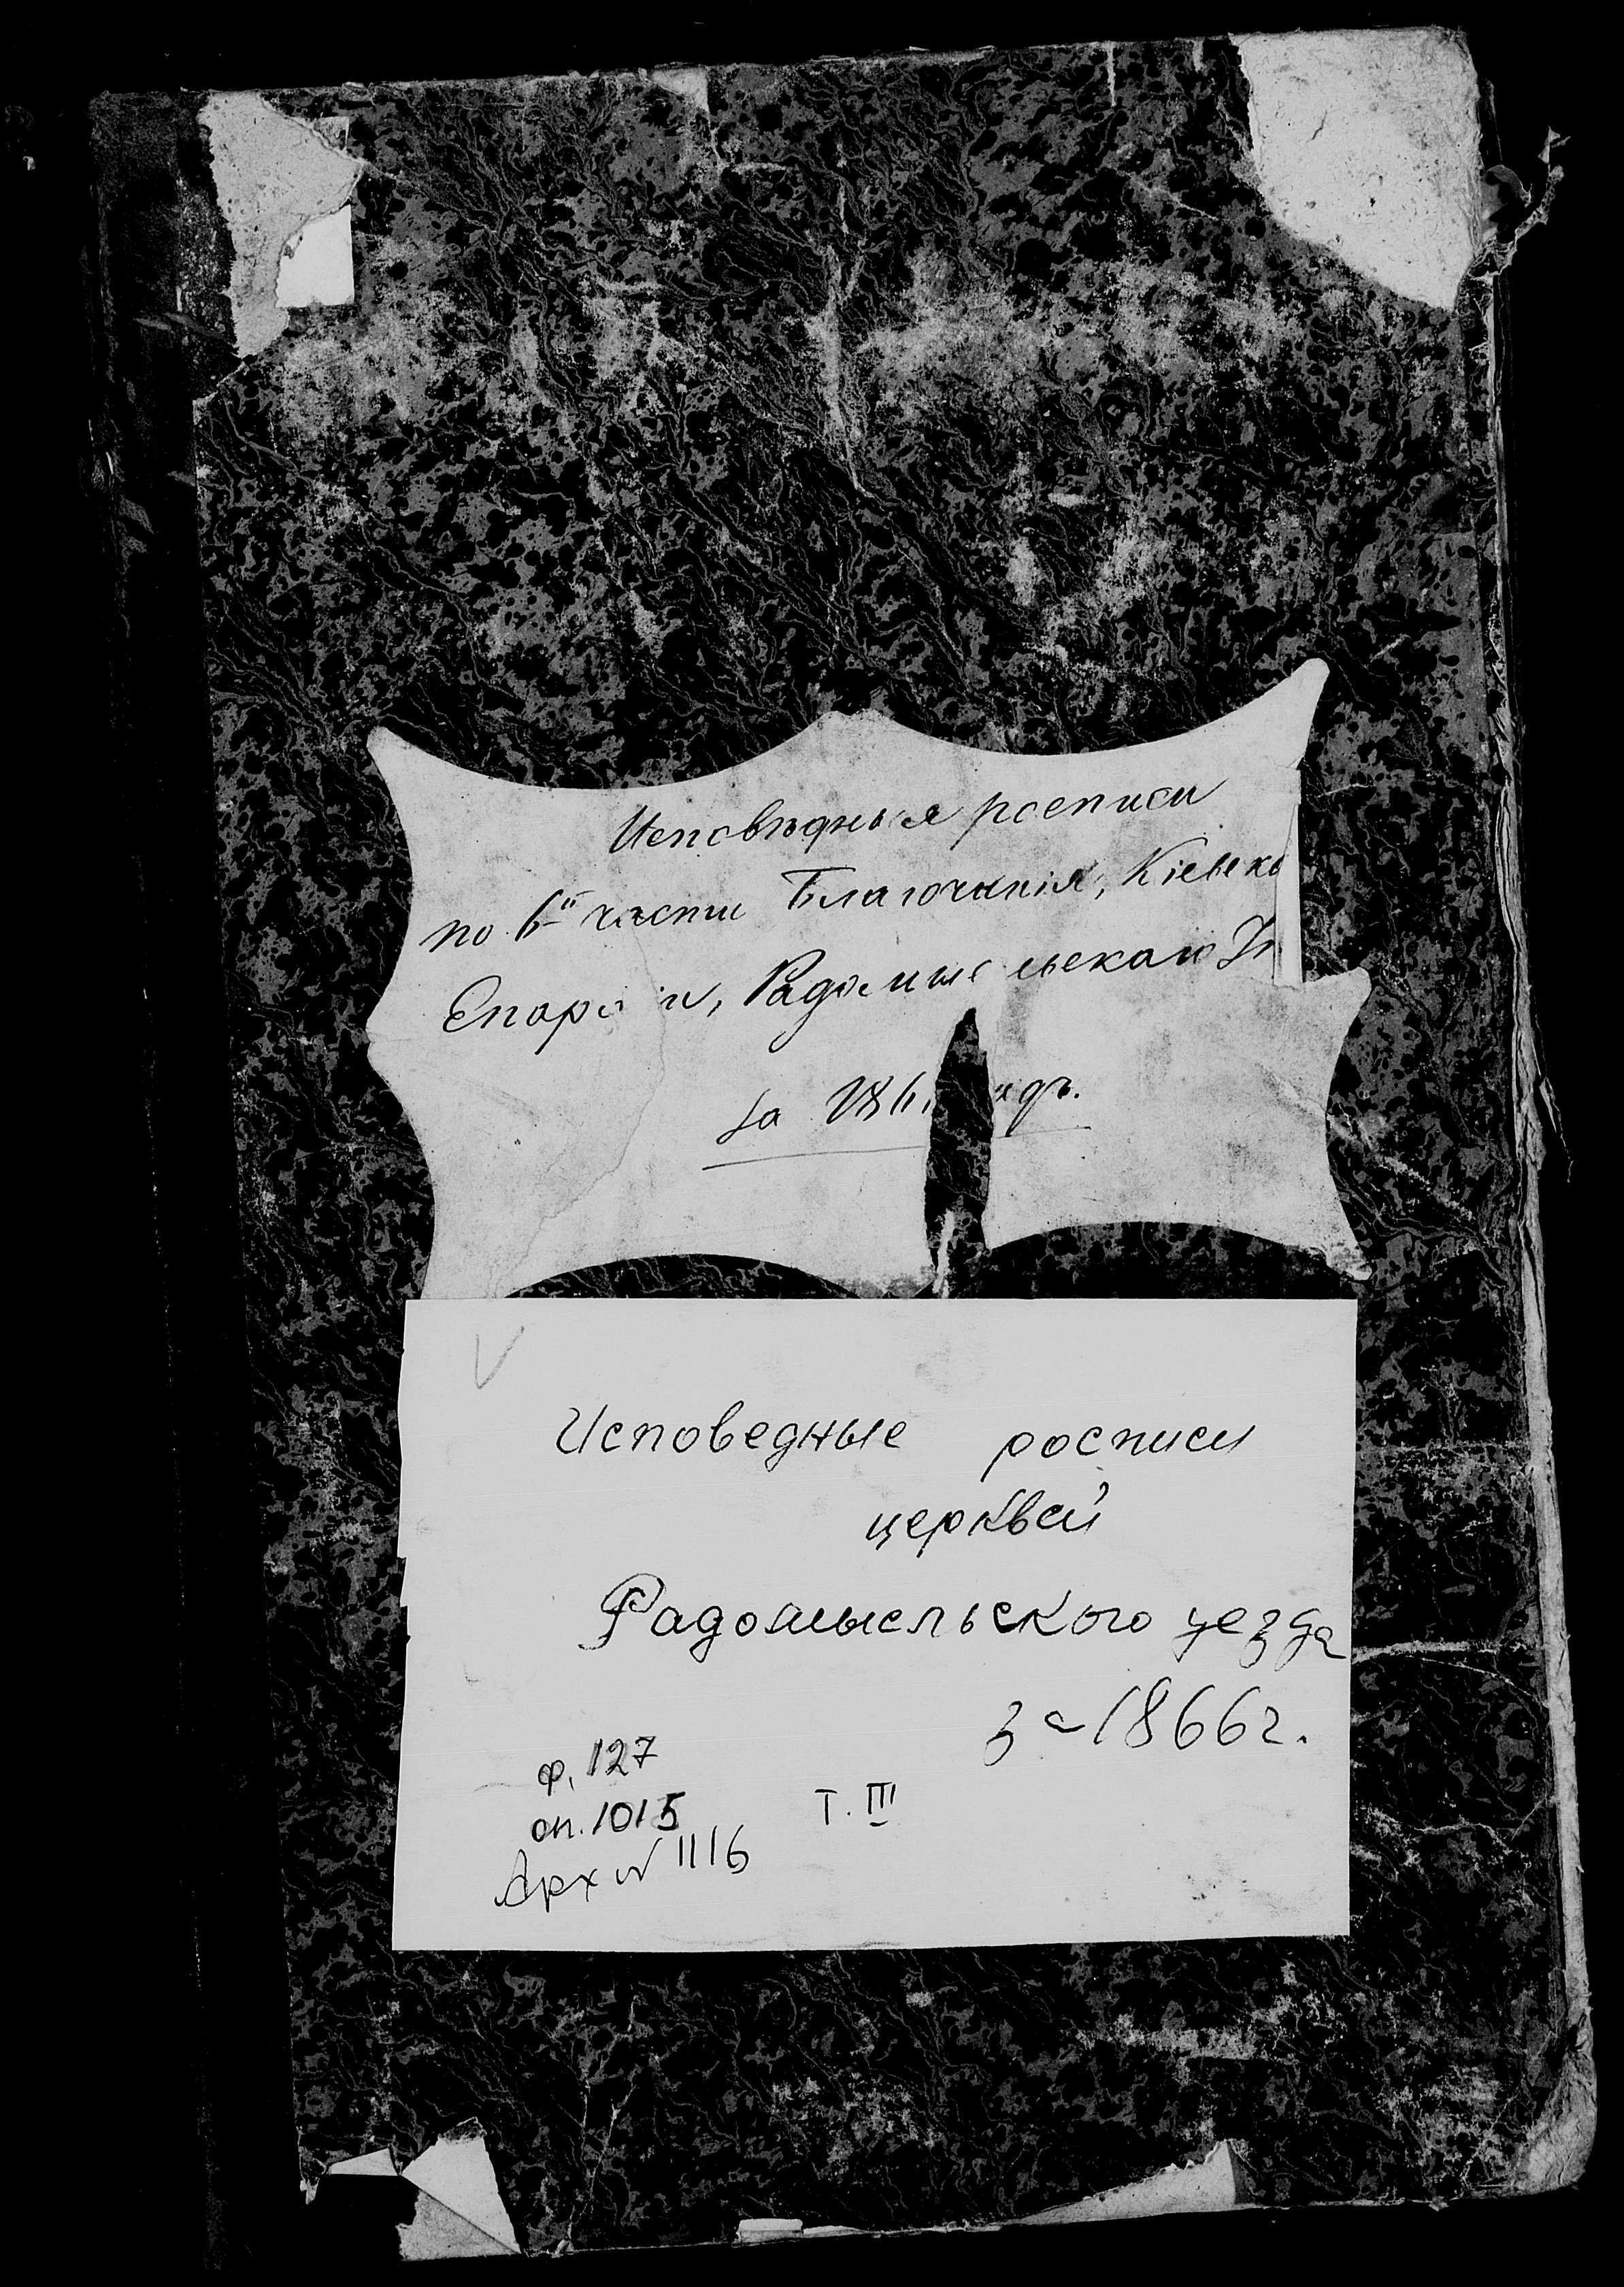 Исповѣдныя росписи
по 6-й части Благочинія, Кіевско
Епархіи, Радомысльскаго
за 186 годъ.
V
Исповедные росписи
церквей
Радомысльского уезда
за 1866 г.
ф. 127
оп. 1015
Т. III
Арх № 1116